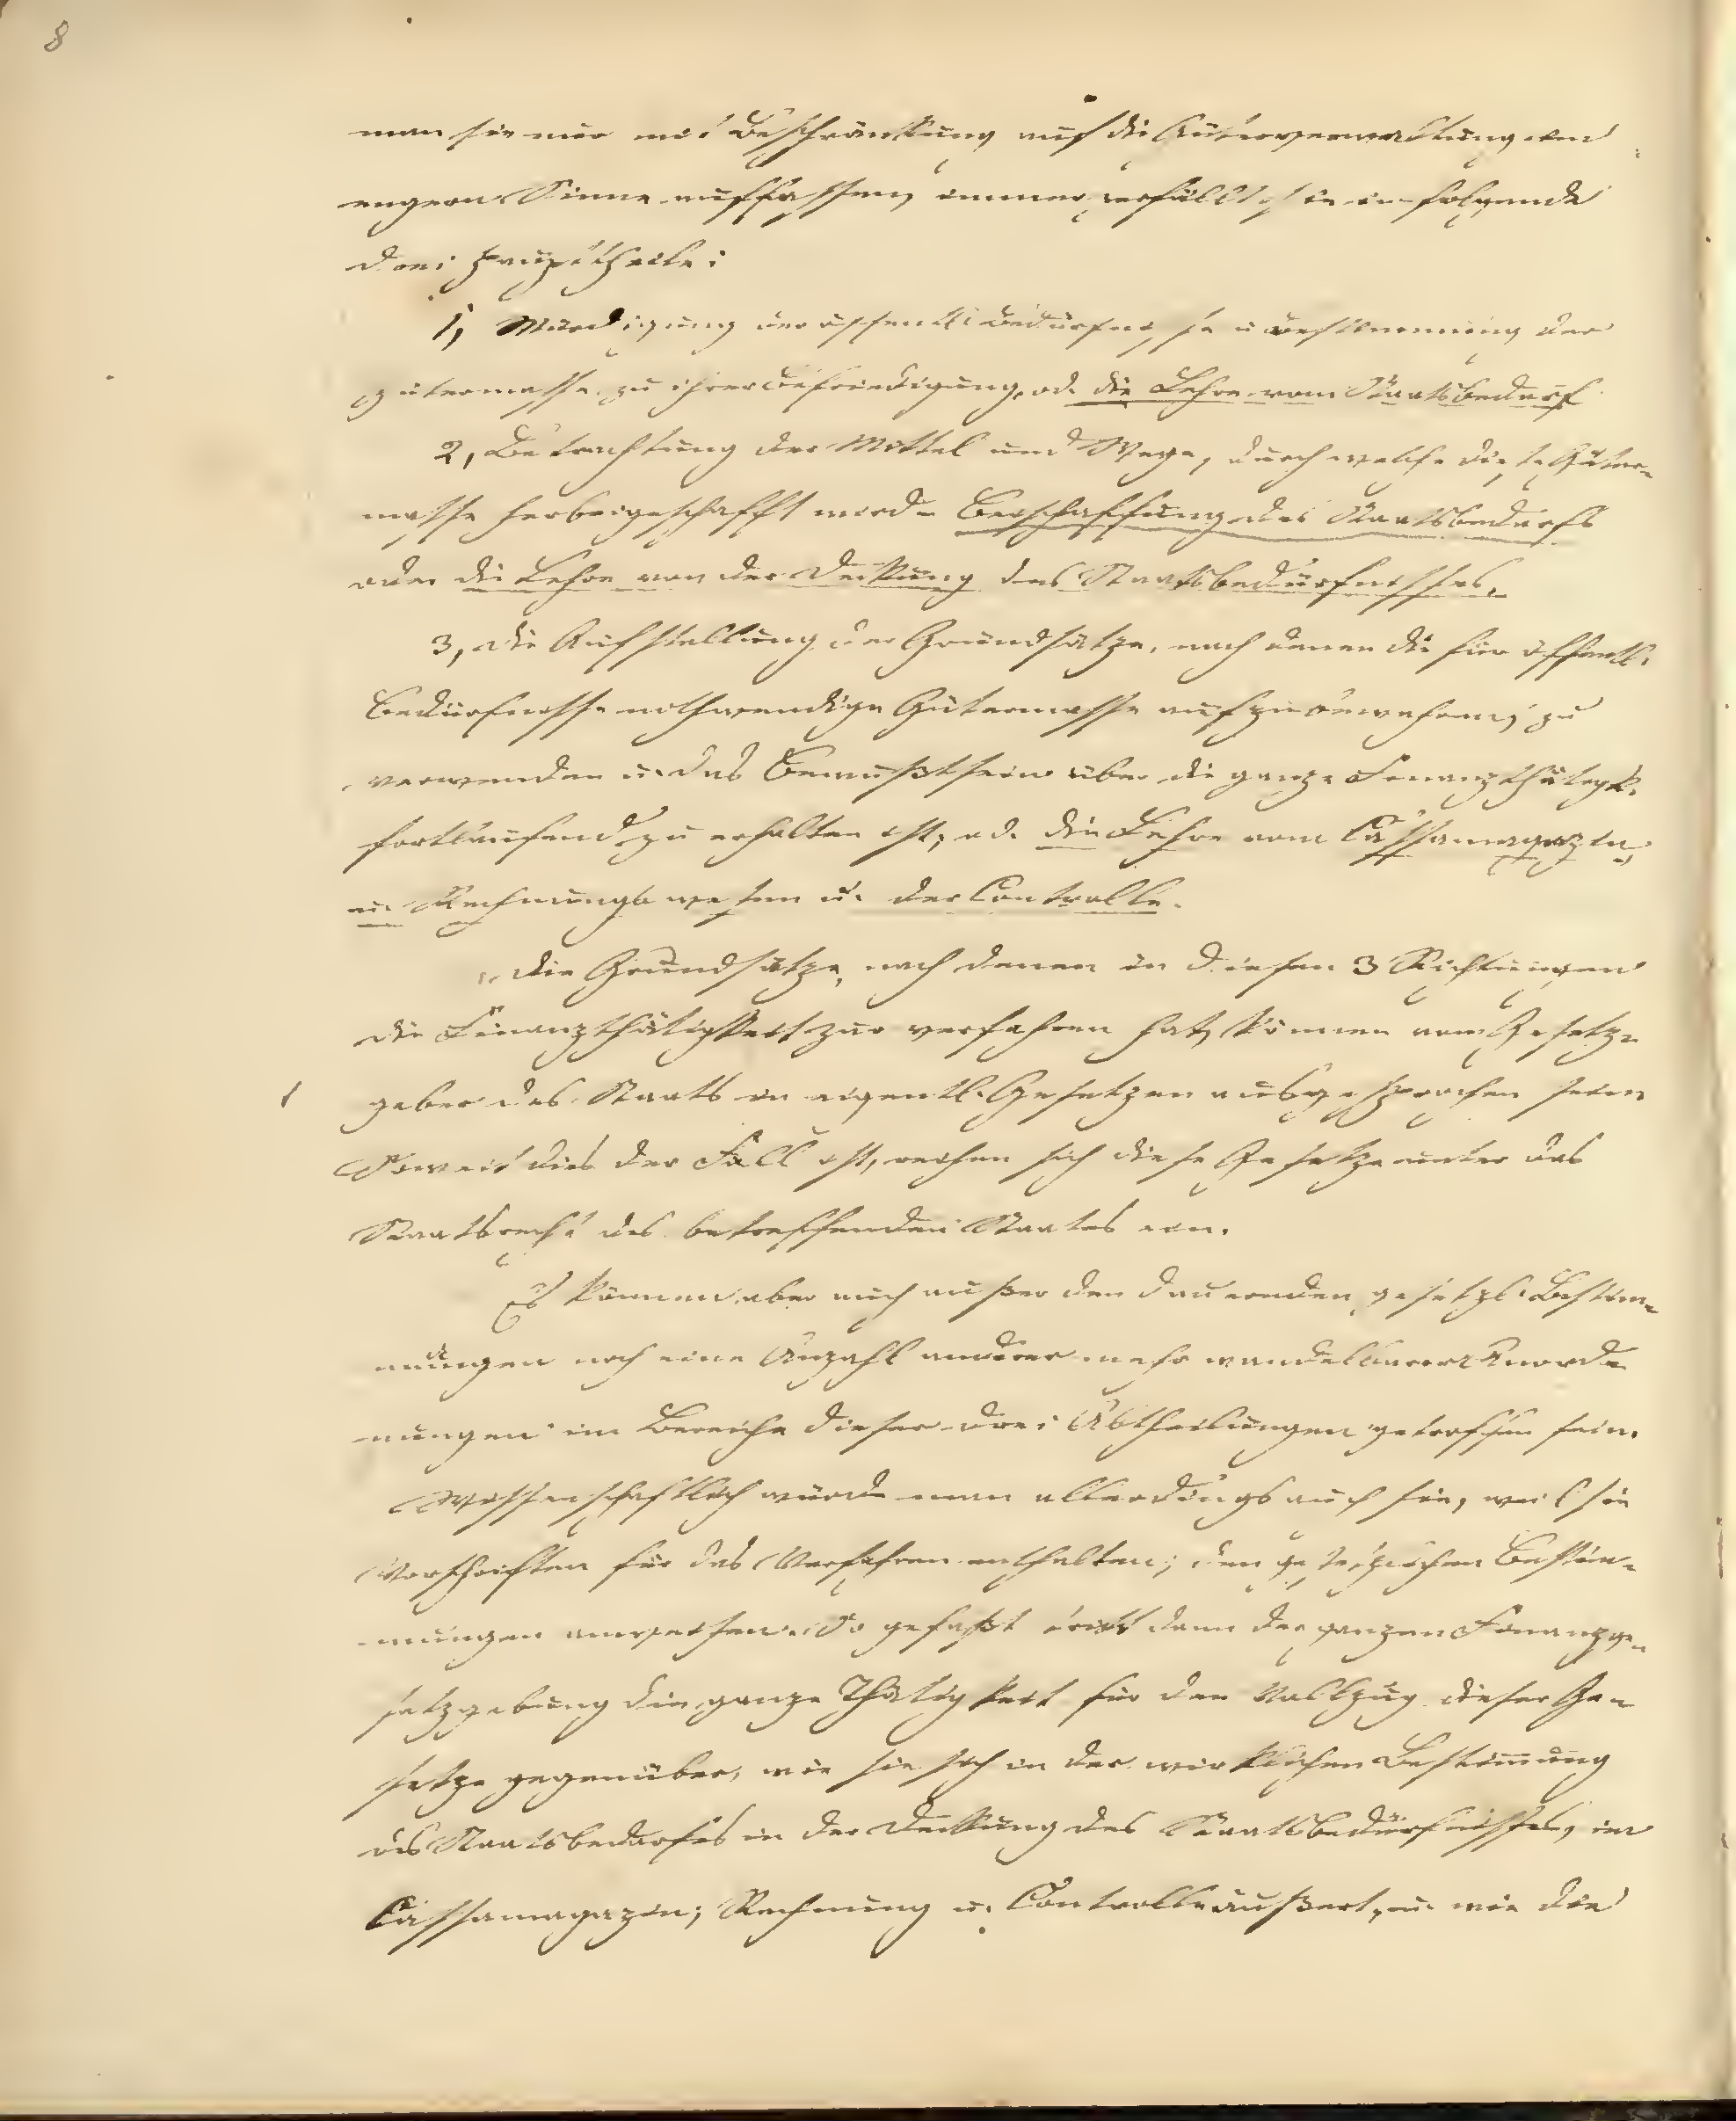 8
man sie nur mit Beschränkung auf die Güterverwaltung im
engern Sinne auffassen, immer zerfällt sie in folgende
drei Haupttheile:
1, Würdigung der öffentl. Bedürfnisse u. Bestimmung der
Gütermasse zu ihrer Befriedigung, od. die Lehre vom Staatsbedarf
2, Betrachtung der Mittel und Wege, durch welche diese Güter-
masse herbeigeschafft wird - Beschaffung des Staatsbedarfs
oder die Lehre von der Deckung des Staatsbedürfnisses.
3, die Aufstellung der Grundsätze, nach denen die für öffentl.
Bedürfnisse nothwendige Gütermasse aufzubewahren, zu
verwenden u. das Bewußtsein über die ganze Finanzthätigk.
fortlaufend zu erhalten ist, od. die Lehre vom Cassamagazin,
Rechnungswesen u. der Controlle.
Die Grundsätze, nach denen in diesen 3 Richtungen
die Finanzthätigkeit zu verfahren hat, können vom Gesetz-
geber des Staats in eigentl. Gesetzen ausgesprochen sein
Soweit dies der Fall ist, reihen sich diese Gesetze unter das
Staatsrecht des betreffenden Staates ein.
Es können aber auch außer den dauernden gesetzl. Bestim-
mungen noch eine Anzahl anderer mehr wandelbarer Anord-
nungen im Bereiche dieser drei Abtheilungen getroffen sein.
Wissenschaftlich würde man allerdings auch sie, weil sie
Vorschriften für das Verfahren enthalten, den gesetzlichen Bestim-
mungen anreihen. So gefaßt tritt dann der ganzen Finanzge-
setzgebung die ganze Thätigkeit für den Vollzug dieser Ge-
setze gegenüber, wie sie sich in der wirklichen Bestimmung
des Staatsbedarfes in der Deckung des Staatsbedürfnisses, im
Cassamagazin, Rechnung u. Controlle äußert, u. wie die